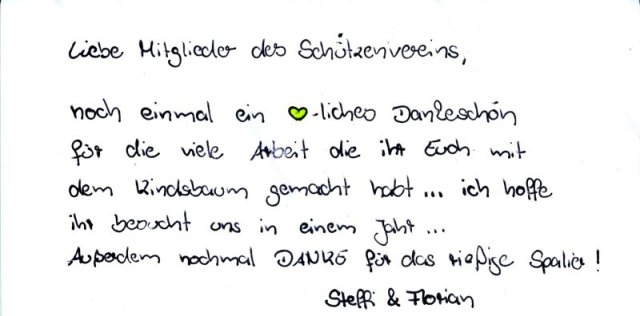 Liebe Mitglieder des Schützenvereins,
noch einmal ein ♥-liches Dankeschön
für die viele Arbeit die ihr Euch mit
dem Kindsbaum gemacht habt... ich hoffe
ihr besucht uns in einem Jahr...
Außerdem nochmal DANKE für das rießige Spalier!
Steffi & Florian